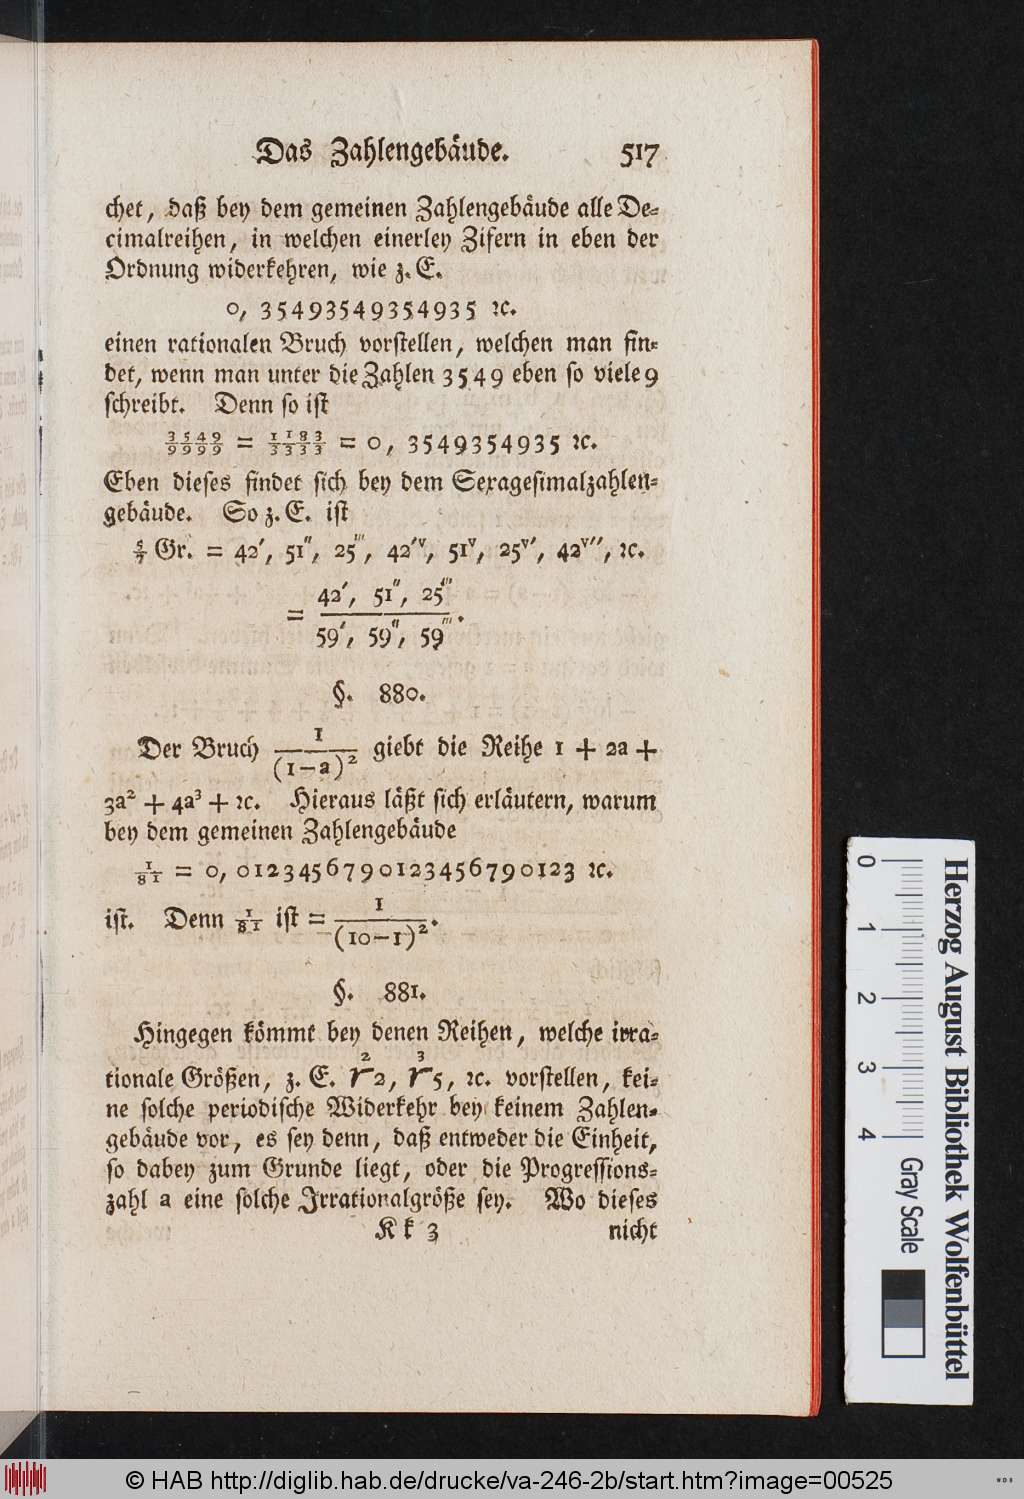 Das Zahlengebäude. 517
chet, daß bey dem gemeinen Zahlengebäude alle De-
cimalreihen, in welchen einerley Zifern in eben der
Ordnung widerkehren, wie z. E.
0, 35493549354935 ꝛc.
einen rationalen Bruch vorstellen, welchen man fin-
det, wenn man unter die Zahlen 3549 eben so viele 9
schreibt. Denn so ist
3549/9999 = 1183/3333 = 0, 3549354935 ꝛc.
Eben dieses findet sich bey dem Sexagesimalzahlen-
gebäude. So z. E. ist
5/7 Gr. = 42′, 51″, 25‴, 42′ᵛ, 51ᵛ, 25ᵛ′, 42ᵛ″, ꝛc.
= 42′, 51″, 25‴ / 59′, 59″, 59‴.
§. 880.
Der Bruch 1/(1−a)² giebt die Reihe 1 + 2a +
3a² + 4a³ + ꝛc. Hieraus läßt sich erläutern, warum
bey dem gemeinen Zahlengebäude
1/81 = 0, 0123456790123456790123 ꝛc.
ist. Denn 1/81 ist = 1/(10−1)².
§. 881.
Hingegen kömmt bey denen Reihen, welche irra-
tionale Größen, z. E. ²√2, ³√5, ꝛc. vorstellen, kei-
ne solche periodische Widerkehr bey keinem Zahlen-
gebäude vor, es sey denn, daß entweder die Einheit,
so dabey zum Grunde liegt, oder die Progressions-
zahl a eine solche Irrationalgröße sey. Wo dieses
K k 3 nicht
0 1 2 3 4
Herzog August Bibliothek Wolfenbüttel
Gray Scale
© HAB http://diglib.hab.de/drucke/va-246-2b/start.htm?image=00525